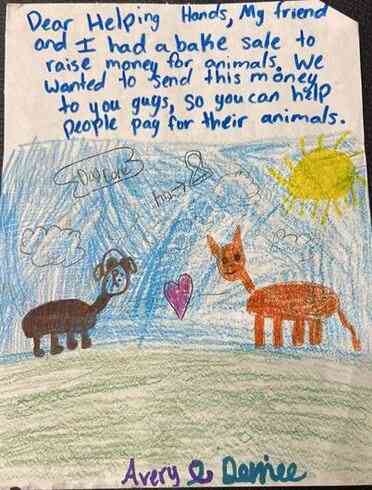 Dear Helping Hands, My friend
and I had a bake sale to
raise money for animals. We
wanted to send this money
to you guys, so you can help
people pay for their animals.
Avery & Demiee